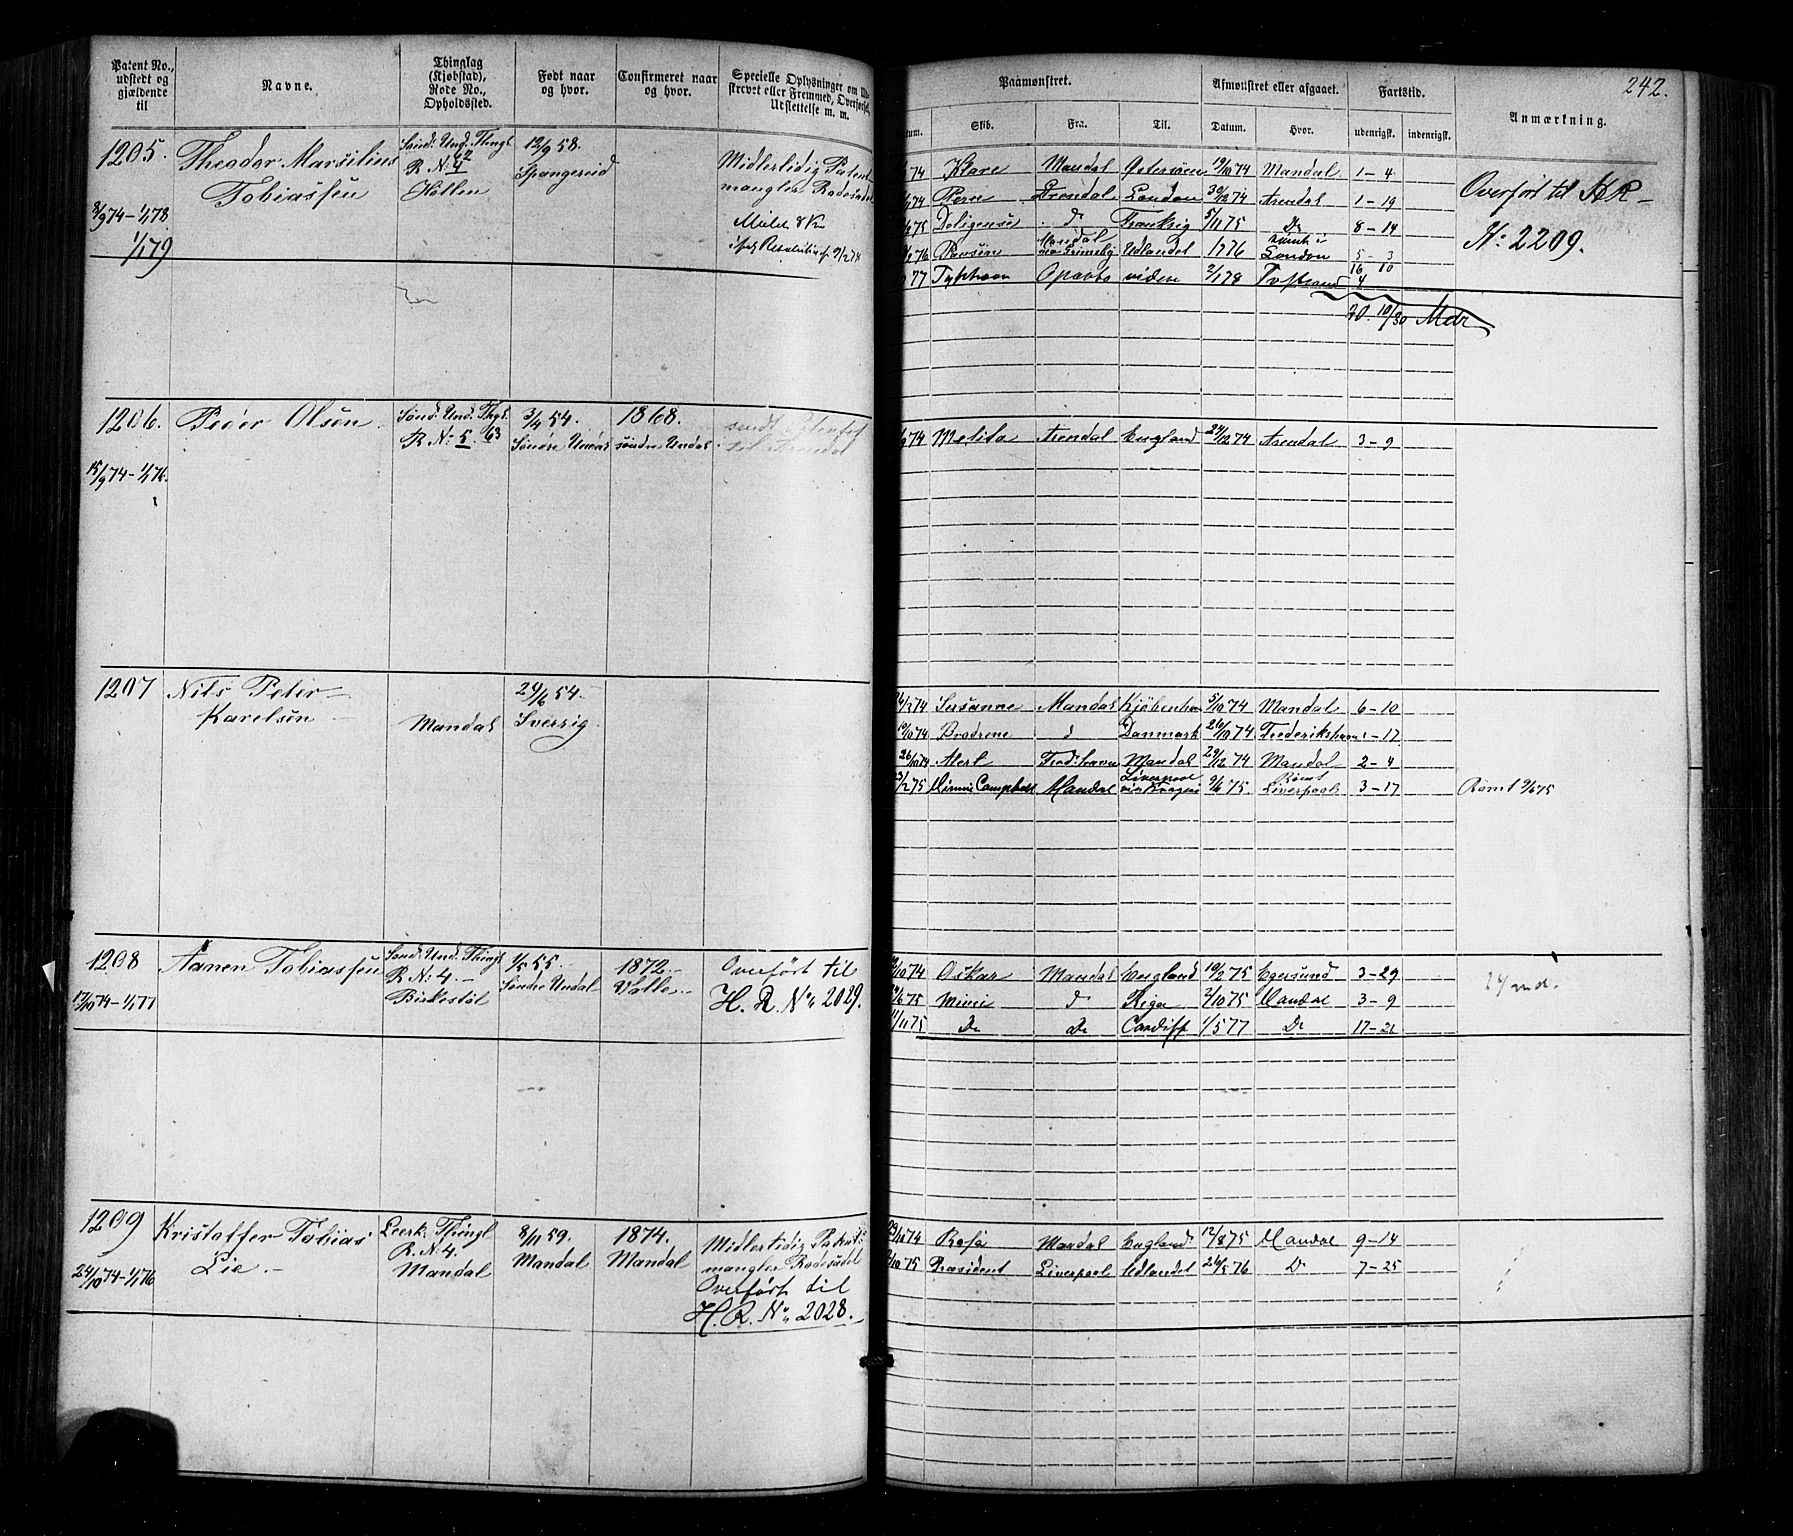 Patent No., udstedt og gjældende til
Navne.
Thinglag (Kjøbstad), Rode No., Opholdssted.
Født naar og hvor.
Confirmeret naar og hvor.
Specielle Oplysninger om Ud-
skrevet eller Fremmed, Overførsel,
Udslettelse m. m.
Paamønstret.
Skib.
Fra.
Til.
Afmønstret eller afgaaet.
Datum.
Hvor.
Fartstid.
udenrigsk.
indenrigsk.
Anmærkning.
242.
1205.
Theodor Marsilius
Tobiassen
8/9 74 – 1/1 78
1/1 79
Sønd. Und. Thingl
R. N: 4 62
Hollen
12/9 58.
Spangereid
Midlertidig Patent
mangler Rodesedel
74 Klare Mandal 19/10 74 Mandal 1–4
74 Arendal London 30/12 74 Arendal 1–19
75 5/11 75 Do 8–14
76 Mandal Udlandet 1776 rømt i London 5–3
77 2/1 78 16 10
4
20. 10/30 Mdr
Overført til HR –
No: 2209.
1206.
Peder Olsen
15/9 74 – 1/1 76.
Sønd: Und: Thgl.
R. N: 5 63
3/4 54.
Søndre Undal
1868.
søndre Undal
sendt
til Arendal
74 Melita Arendal England 24/12 74 Arendal 3–9
1207
Nils Peter
Karelsen
Mandal
24/6 54.
Sverrig
74 Susanne Mandal Kjøbenhavn 5/10 74 Mandal 6–10
19/10 74 Brødrene d Danmark 26/10 74 Frederikshavn –17
26/10 74 Alert Fredshavn Mandal 29/12 74 Mandal 2–4
75 Minnie Campbell Mandal Liverpool 9/6 75. Rømt Liverpool 3–17
Rømt 9/6 75
1208
Aanen Tobiassen
17/10 74 – 1/1 77
Sønd: Und: Thingl
R. N: 4. –
Birkestøl
1/5 55
Søndre Undal
1872.
Valle.
Overført til
H. R. No: 2029.
10 74 Oskar Mandal England 10/2 75 Egersund 3–29
6 75 d Riga 2/10 75 Mandal 3–9
11/11 75 Do Do Cardiff 1/5 77 Do 17–21
24 md.
1209
Kristoffer Tobias
Lie. –
24/10 74 – 1/1 76
Thingl
R. N: 4.
Mandal
8/11 59.
Mandal
1874.
Mandal
Midlertidig Patent
mangler Rodesedel
Overført til
H. R. No: 2028.
10 74 Rosa Mandal England 12/8 75 Mandal 9–14
10 75 Præsident Liverpool Udlandet 26/5 76 Do 7–25